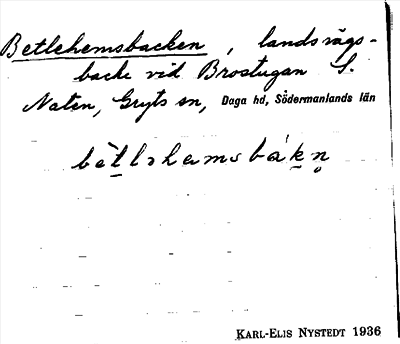 Betlehemsbacken, landsvägs-
backe vid Brostugan S.
Naten, Gryts sn, Daga hd, Södermanlands län
bètləhemsbák̥n̥
KARL-ELIS NYSTEDT 1936